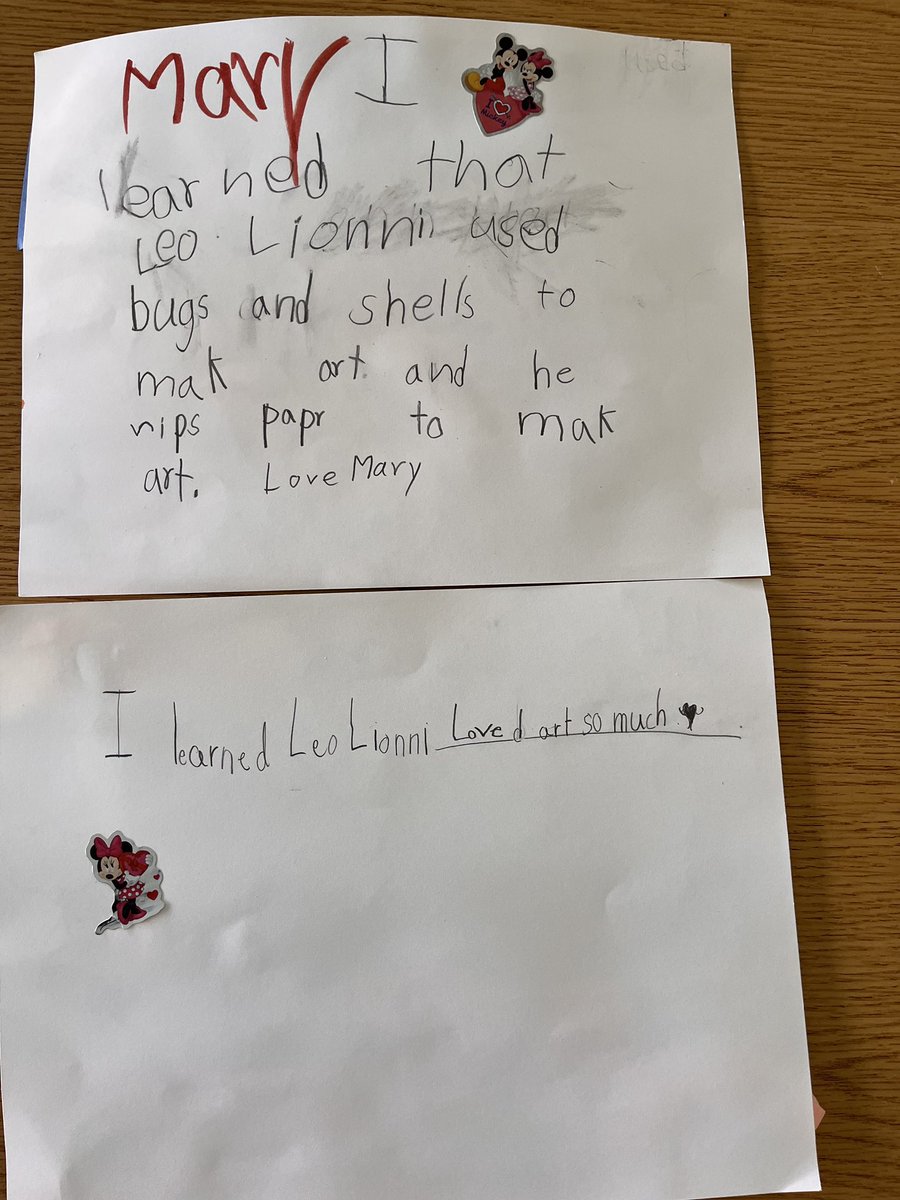 Mary I
learned that
Leo Lionni used
bugs and shells to
mak art. and he
rips papr to mak
art. Love Mary
I learned Leo Lionni Loved art so much.